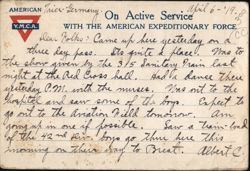 AMERICAN
Y.M.C.A.
Trier Germany. April 6-'19.
On Active Service
WITH THE AMERICAN EXPEDITIONARY FORCE
Dear Folks: Came up here yesterday on a
three day pass. Its quite a place! Was to
the show given by the 315 Sanitary Train last
night at the Red Cross hall. Had a dance there
yesterday P.M. with the nurses. Was out to the
hospital and saw some of the boys. Expect to
go out to the Aviation Field tomorrow. Am
going up in one if possible. Saw a train-load
of the 42nd Div. boys go thru here this
morning on their way to Brest. Albert C